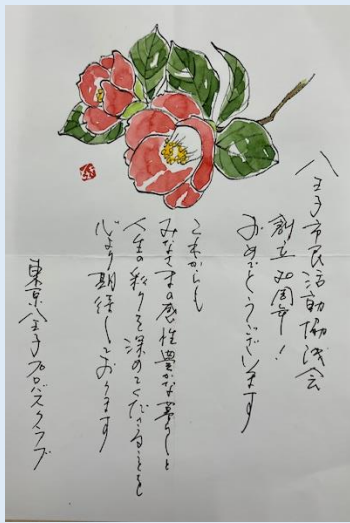 八王子市民活動協議会
創立20周年！
おめでとうございます
これからも
みなさまの感性豊かな暮らしと
人生の彩りを深めてくださることを
心より期待しております
東京八王子プロバスクラブ